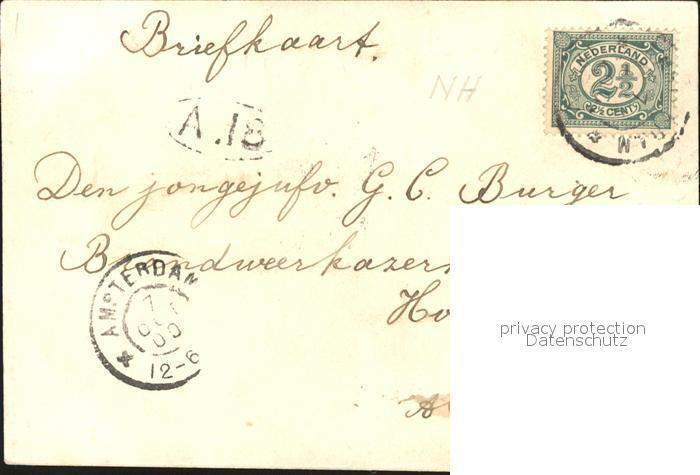 Briefkaart.
NEDERLAND
2½
2½ CENT
NH
A.18
Den jongejufv. G. C. Burger
Brandweerkazern
Ho
AMSTERDAM
12-6
privacy protection
Datenschutz